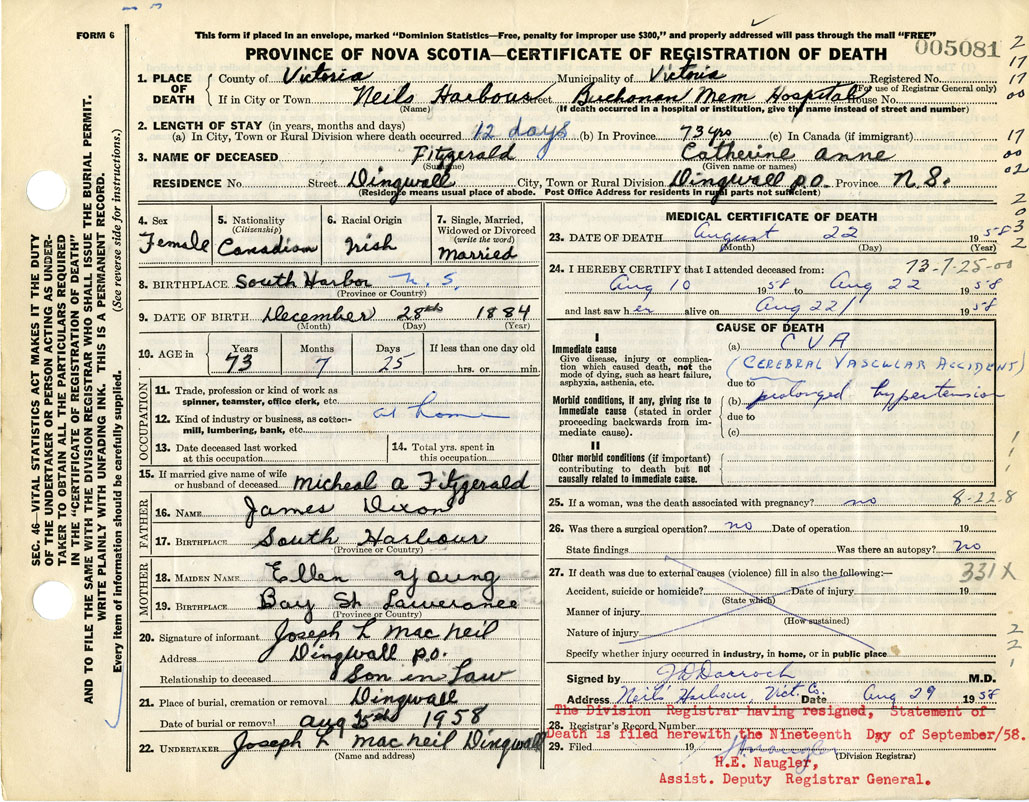 FORM 6
This form if placed in an envelope, marked "Dominion Statistics—Free, penalty for improper use $300," and properly addressed will pass through the mail "FREE"
PROVINCE OF NOVA SCOTIA—CERTIFICATE OF REGISTRATION OF DEATH
005081
SEC. 46—VITAL STATISTICS ACT MAKES IT THE DUTY
OF THE UNDERTAKER OR PERSON ACTING AS UNDER-
TAKER TO OBTAIN ALL THE PARTICULARS REQUIRED
IN THE "CERTIFICATE OF REGISTRATION OF DEATH"
AND TO FILE THE SAME WITH THE DIVISION REGISTRAR WHO SHALL ISSUE THE BURIAL PERMIT.
WRITE PLAINLY WITH UNFADING INK. THIS IS A PERMANENT RECORD.
Every item of information should be carefully supplied. (See reverse side for instructions.)
1. PLACE OF DEATH
County of Victoria Municipality of Victoria Registered No.
(For use of Registrar General only)
If in City or Town Neils Harbour Street Buchanan Mem Hospital House No.
(Name) (If death occurred in a hospital or institution, give the name instead of street and number)
2. LENGTH OF STAY (in years, months and days)
(a) In City, Town or Rural Division where death occurred 12 days (b) In Province 73 yrs (c) In Canada (if immigrant)
3. NAME OF DECEASED Fitzgerald Catherine Anne
(Surname) (Given name or names)
RESIDENCE No. Street Dingwall City, Town or Rural Division Dingwall P.O. Province N.S.
(Residence means usual place of abode. Post Office Address for residents in rural parts not sufficient)
2
17
17
00
17
00
02
2
0
3
2
4. Sex Female
5. Nationality (Citizenship) Canadian
6. Racial Origin Irish
7. Single, Married, Widowed or Divorced (write the word) Married
8. BIRTHPLACE South Harbor N.S.
(Province or Country)
9. DATE OF BIRTH December 28th 1884
(Month) (Day) (Year)
10. AGE in Years 73 Months 7 Days 25 If less than one day old hrs. or min.
OCCUPATION
11. Trade, profession or kind of work as spinner, teamster, office clerk, etc.
12. Kind of industry or business, as cotton-mill, lumbering, bank, etc. at home
13. Date deceased last worked at this occupation
14. Total yrs. spent in this occupation
15. If married give name of wife or husband of deceased Micheal A Fitzgerald
FATHER
16. NAME James Dixon
17. BIRTHPLACE South Harbour
(Province or Country)
MOTHER
18. MAIDEN NAME Ellen Young
19. BIRTHPLACE Bay St Lawerance
(Province or Country)
20. Signature of informant Joseph L MacNeil
Address Dingwall P.O.
Relationship to deceased Son in Law
21. Place of burial, cremation or removal Dingwall
Date of burial or removal Aug 25th 1958
22. UNDERTAKER Joseph L MacNeil Dingwall
(Name and address)
MEDICAL CERTIFICATE OF DEATH
23. DATE OF DEATH August 22 1958
(Month) (Day) (Year)
73-7-25-00
24. I HEREBY CERTIFY that I attended deceased from:
Aug 10 1958 to Aug 22 1958
and last saw her alive on Aug 22 1958
CAUSE OF DEATH
I
Immediate cause
Give disease, injury or complication which caused death, not the mode of dying, such as heart failure, asphyxia, asthenia, etc.
(a) CVA
(CEREBRAL VASCULAR ACCIDENT)
due to
Morbid conditions, if any, giving rise to immediate cause (stated in order proceeding backwards from immediate cause).
(b) prolonged hypertension
due to
(c)
II
Other morbid conditions (if important) contributing to death but not causally related to immediate cause.
1
1
1
25. If a woman, was the death associated with pregnancy? no 8-22-8
26. Was there a surgical operation? no Date of operation 19
State findings Was there an autopsy? No
27. If death was due to external causes (violence) fill in also the following:— 331X
Accident, suicide or homicide? Date of injury 19
(State which)
Manner of injury
(How sustained)
Nature of injury
Specify whether injury occurred in industry, in home, or in public place
2
2
1
Signed by J D Darroch M.D.
Address Neils Harbour, Vict Co. Date Aug 29 1958
The Division Registrar having resigned, Statement of
28. Registrar's Record Number
Death is filed herewith the Nineteenth Day of September/58.
29. Filed 19 HNaugler (Division Registrar)
H.E. Naugler,
Assist. Deputy Registrar General.